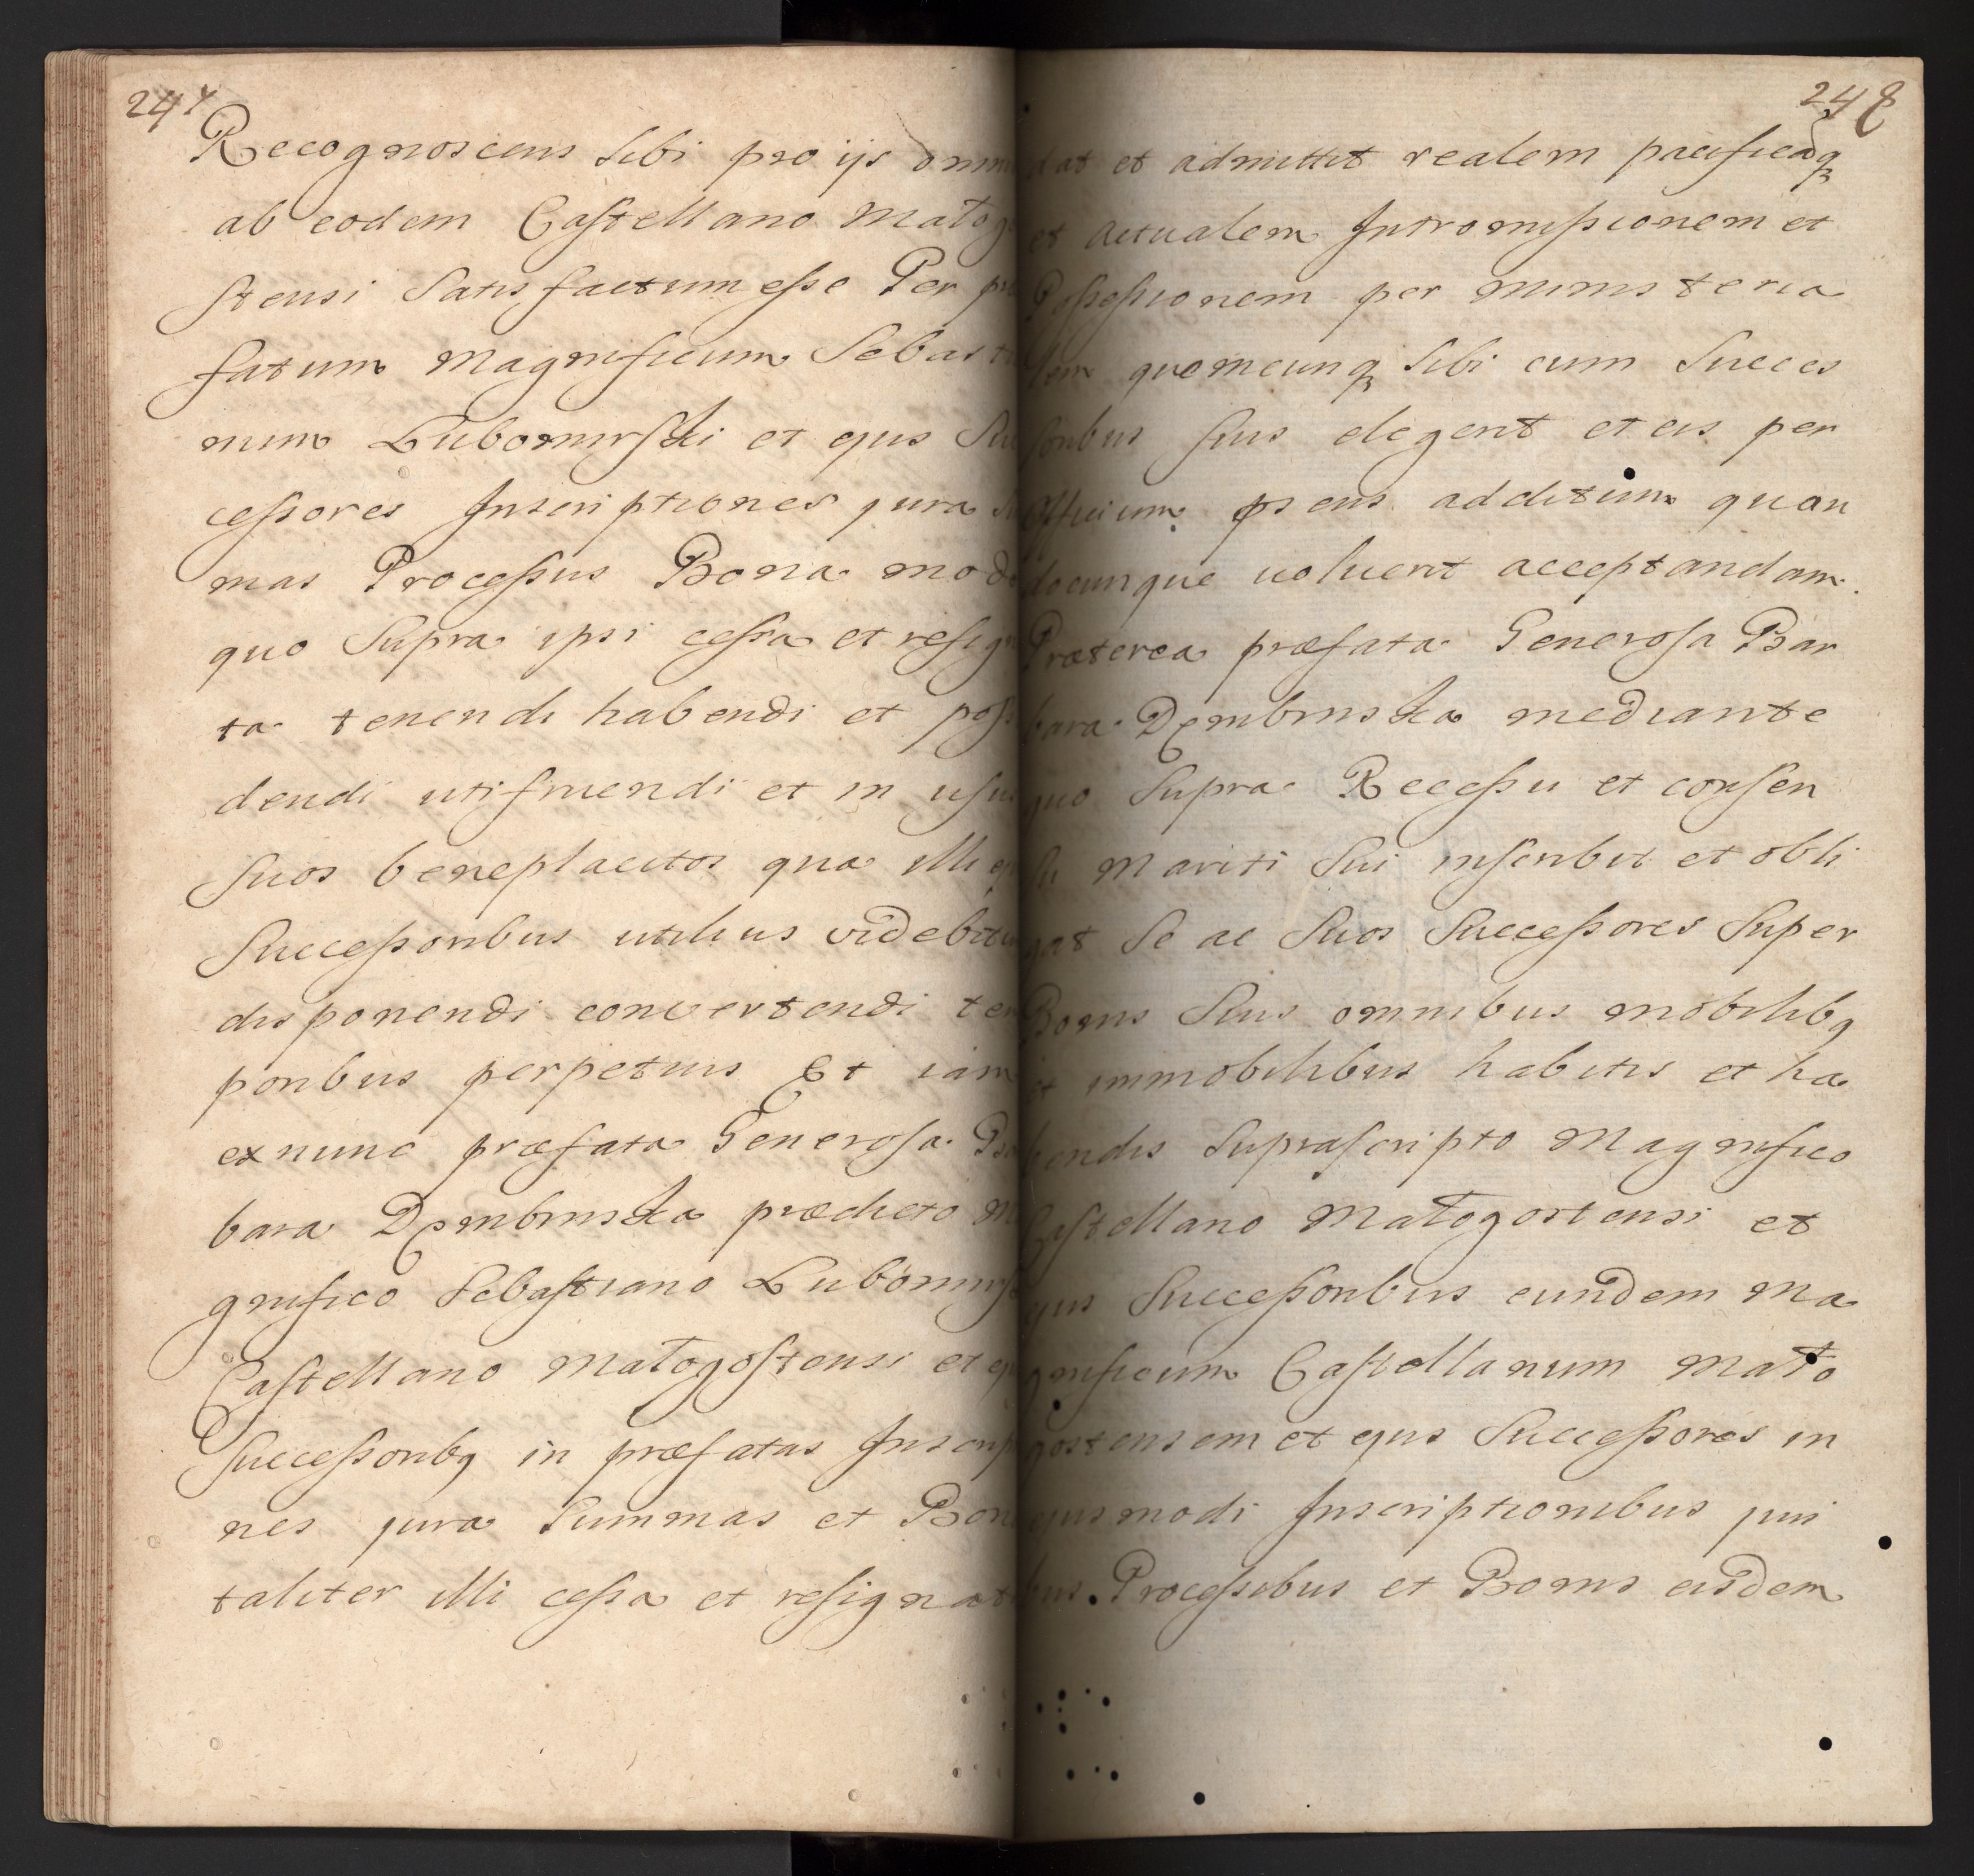 247
Recognoscens sibi pro ijs omni
ab eodem Castellano Małogo
stensi Satisfactum esse Per præ
fatum Magnificum Sebastia
num Lubomirski et ejus Suc
cessores Inscriptiones jura Su
mas Processus Bona modo
quo Supra ipsi cessa et resigna
ta tenendi habendi et possi
dendi utifruendi et in usus
Suos beneplacitos qua illi ejus
Successoribus utilius videbitur
disponendi convertendi tem
poribus perpetuis Et iam
ex nunc præfata Generosa Bar
bara Dębinska prædicto Ma
gnifico Sebastiano Lubomirski
Castellano Małogostensi et ejus
Successoribq in præfatas Inscriptio
nes jura Summas et Bona
taliter illi cessa et resignata
248
dat et admittit realem pacificāq
et actualem Intromissionem et
Possessionem per ministeria
lem quemcunq sibi cum Succes
soribus suis elegerit et eis per
Officium præsens additum quan
docunque uoluerit acceptandam.
Præterea præfata Generosa Bar
bara Dembinska mediante
quo Supra Recessu et consen
su Mariti Sui inscribit et obli
gat Se ac Suos Successores Super
Bonis Suis omnibus mobilibq
et immobilibus habitis et ha
bendis Suprascripto Magnifico
Castellano Małogostensi et
ejus Successoribus eundem Ma
gnificum Castellanum Mało
gostensem et ejus Successores in
ejusmodi Inscriptionibus juri
bus Processibus et Bonis eisdem